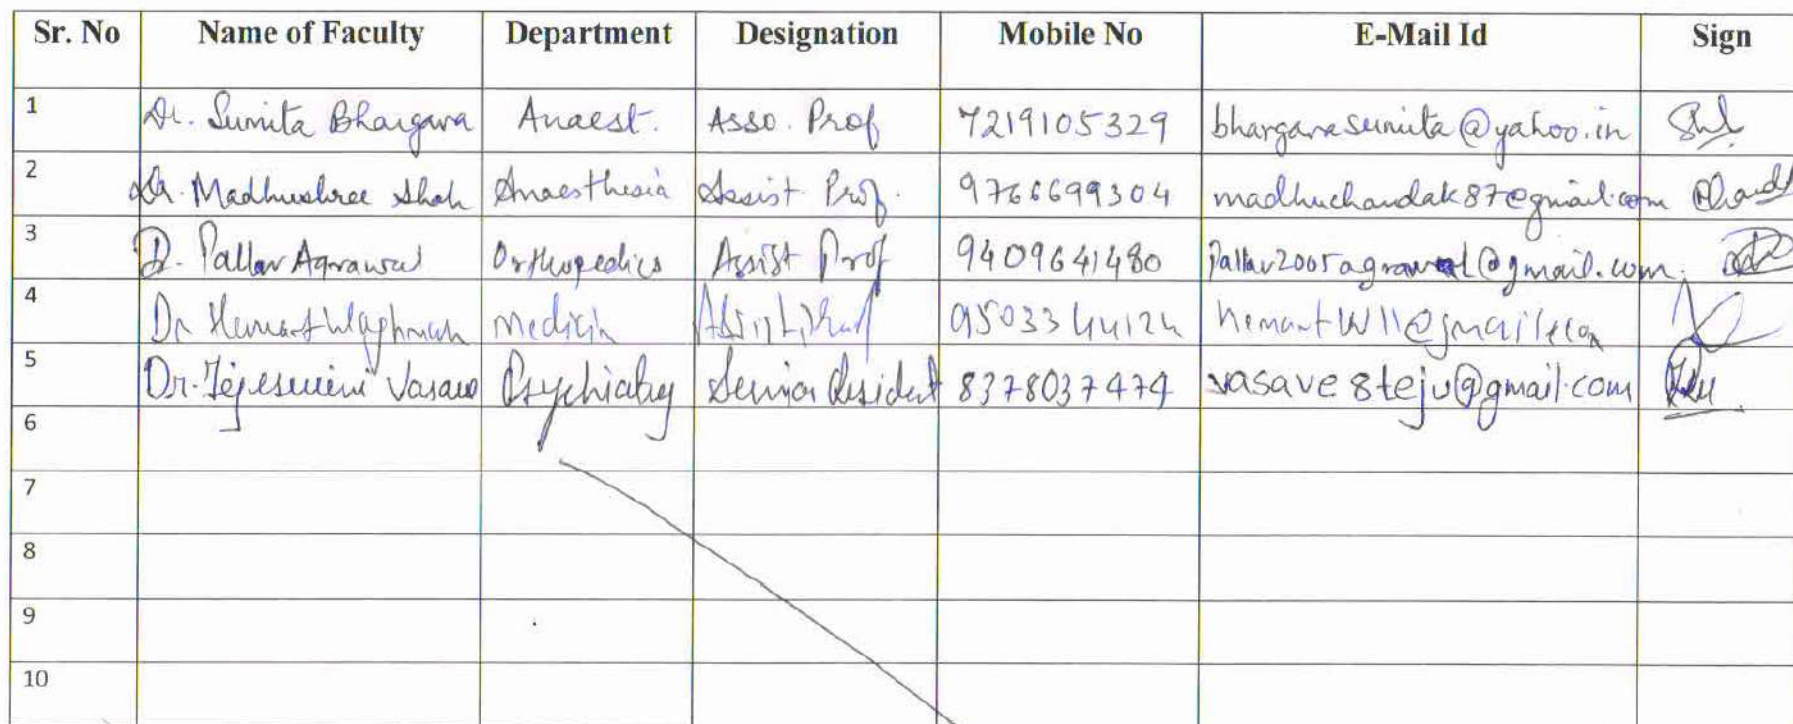 Sr. No Name of Faculty Department Designation Mobile No E-Mail Id Sign
1 Dr. Sunita Bhargava Anaest. Asso. Prof 7219105329 bhargavasunita@yahoo.in
2 Dr. Madhushree Shah Anaesthesia Assist Prof. 9766699304 madhuchandak87@gmail.com
3 Dr. Pallav Agrawal Orthopedics Assist Prof 9409641480 Pallav2005agrawal@gmail.com.
4 Dr Hemant Medicin Assist Prof hemantW11@gmail.com
5 Dr. Vasave Psychiatry Senior Resident 8378037474 vasave8teju@gmail.com
6
7
8
9
10